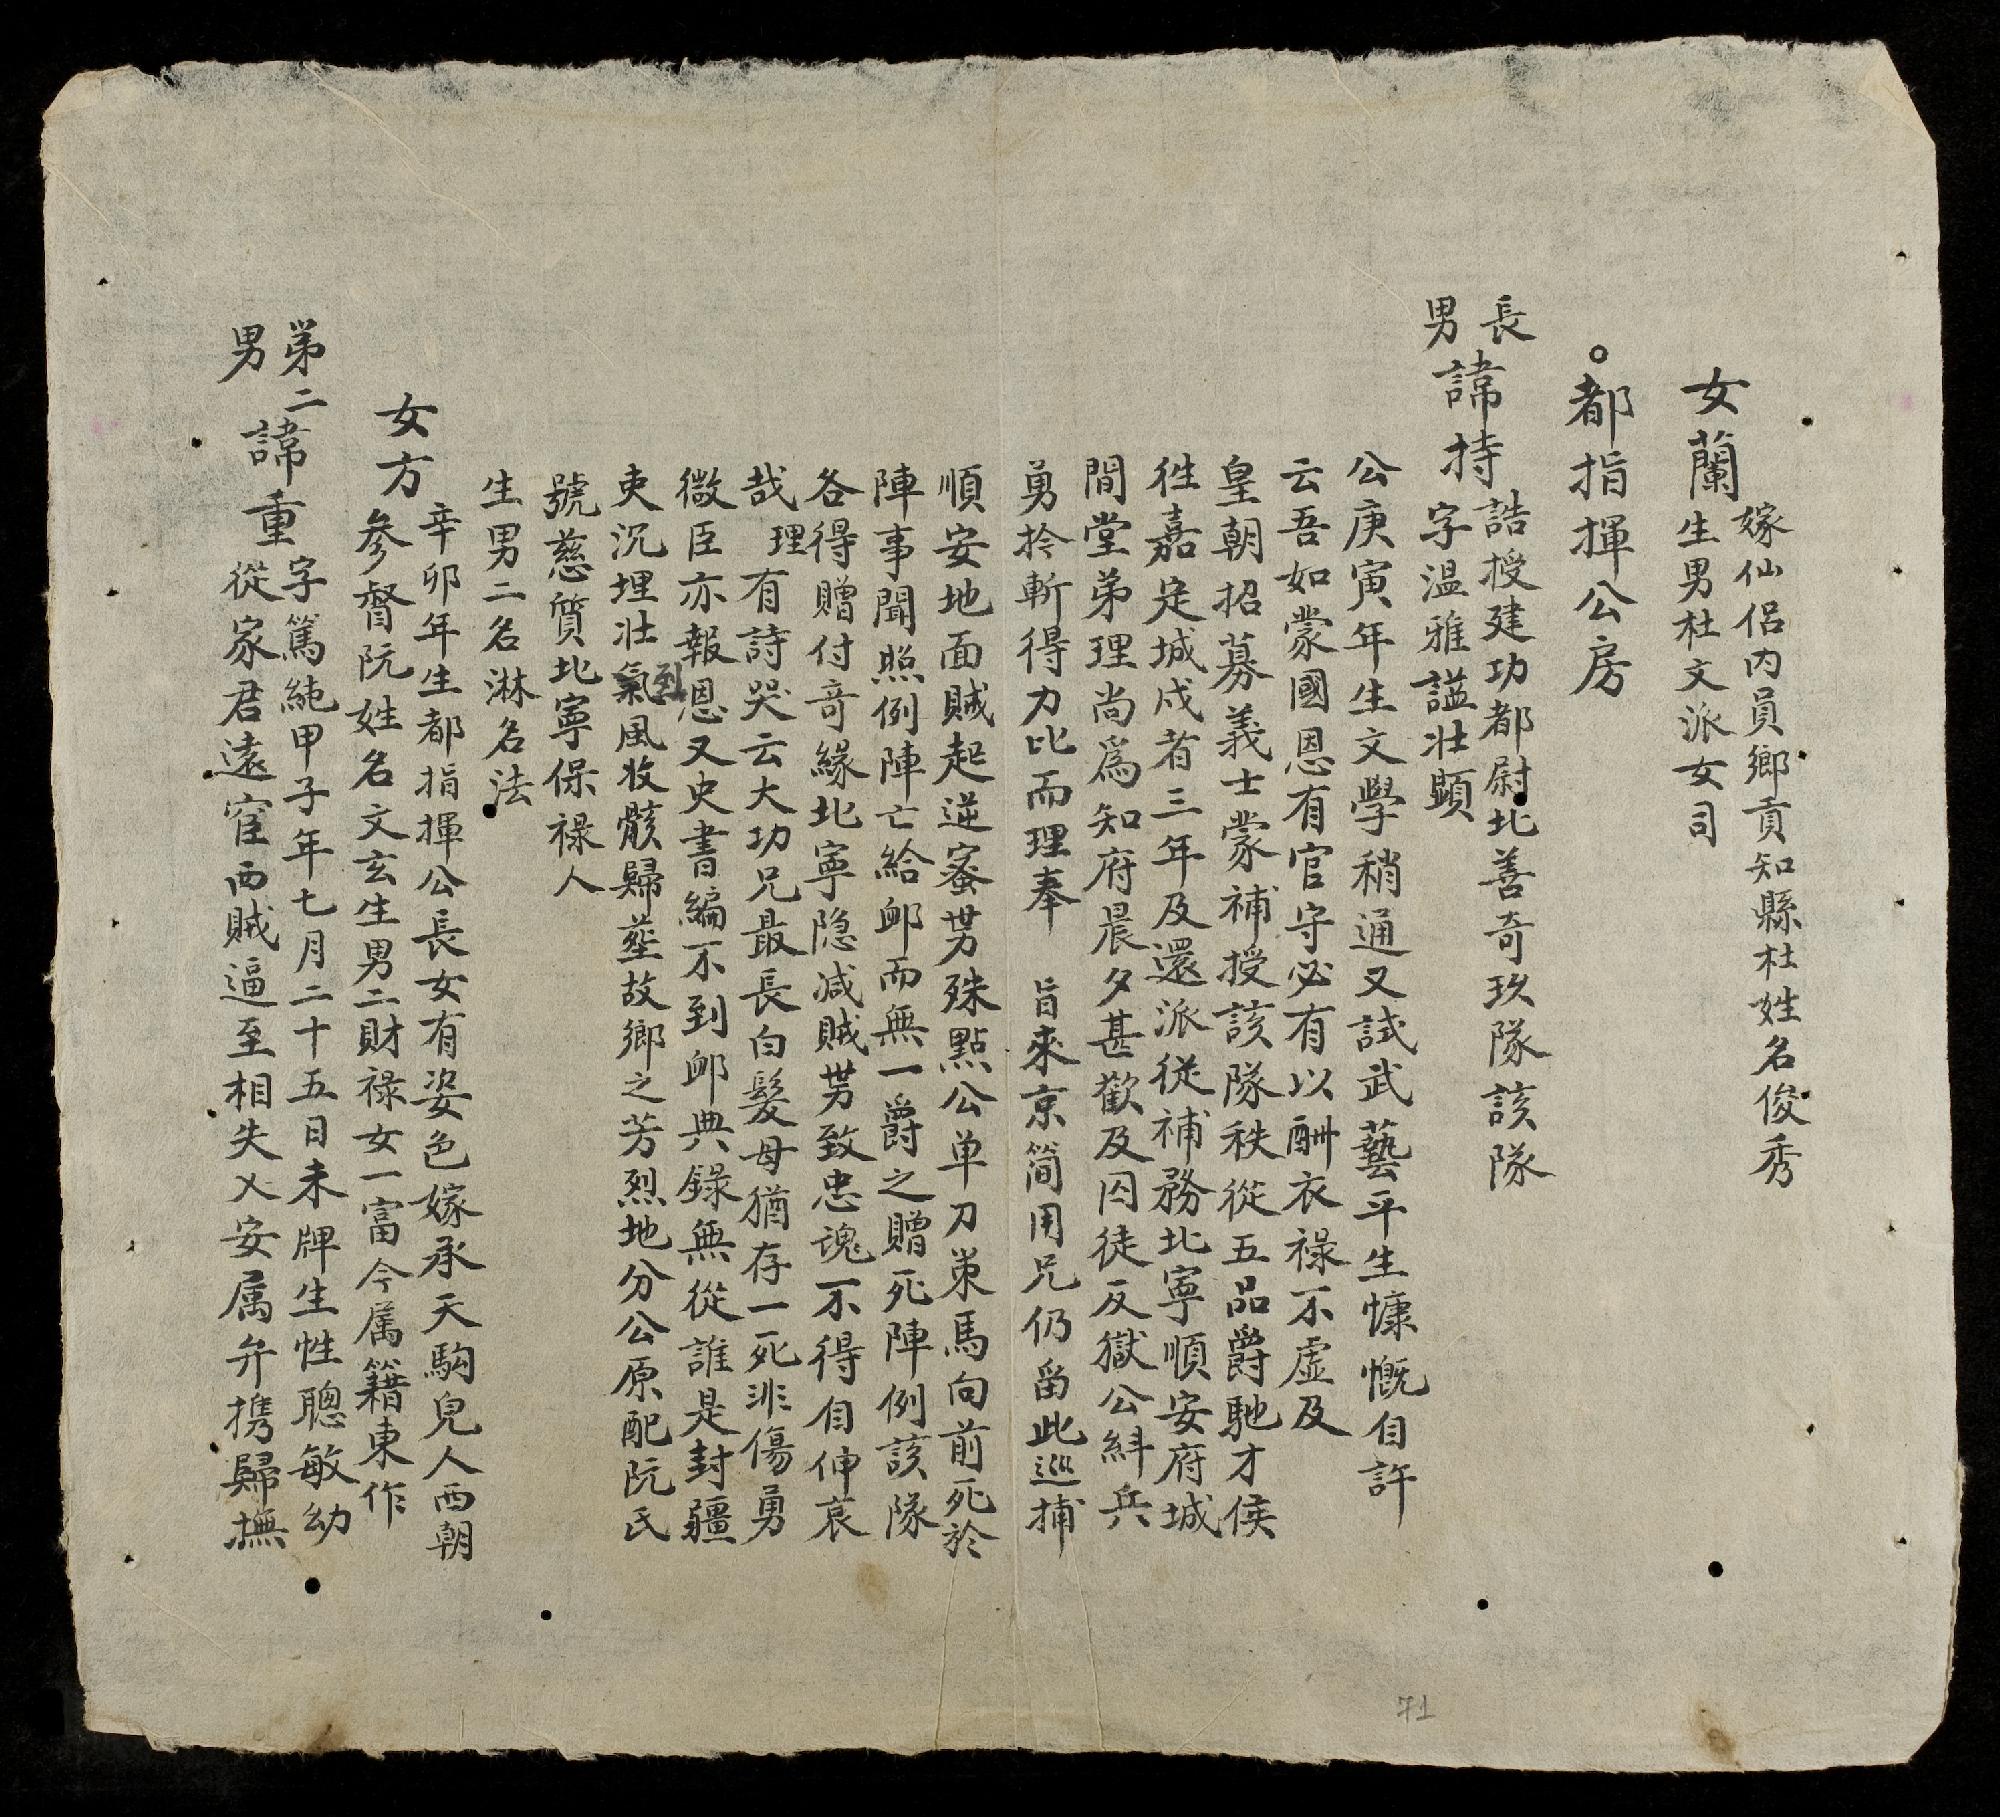 女蘭
嫁仙侶內員鄉貢知縣杜姓名俊秀
生男杜文派女司
○都指揮公房
長男
諱持
誥授建功都尉北善奇玖隊該隊
字温雅謚壯顯
公庚寅年生文學稍通又試武藝平生慷慨自許
云吾如蒙國恩有官守必有以酬衣祿不虛及
皇朝招募義士蒙補授該隊秩從五品爵馳才侯
徃嘉定城戍者三年及還派從補務北寧順安府城
間堂弟理尚爲知府晨夕甚歡及囚徒反獄公糾兵
勇拎斬得力比而理奉 旨來京简用兄仍留此巡捕
順安地面賊起逆蜜勞殊點公单刀策馬向前死於
陣事聞照例陣亡給卹而無一爵之贈死陣例該隊
各得贈付竒緣北寧隐减賊勞致忠魂不得自伸哀
哉 理有詩哭云大功兄最長白髮母猶存一死非傷勇
微臣亦報恩又史書編不到卹典錄無從誰是封疆
吏沉埋壯氣到風收骸歸塟故鄉之芳烈地分公原配阮氏
號慈質北寧保祿人
生男二名淋名法
女方
辛卯年生都指揮公長女有姿色嫁承天駒兒人西朝
參督阮姓名文玄生男二財祿女一富今属籍東作
第二男
諱重
字篤純甲子年七月二十五日未牌生性聰敏幼
從家君遠宦西賊逼至相失乂安属弁携歸撫
71